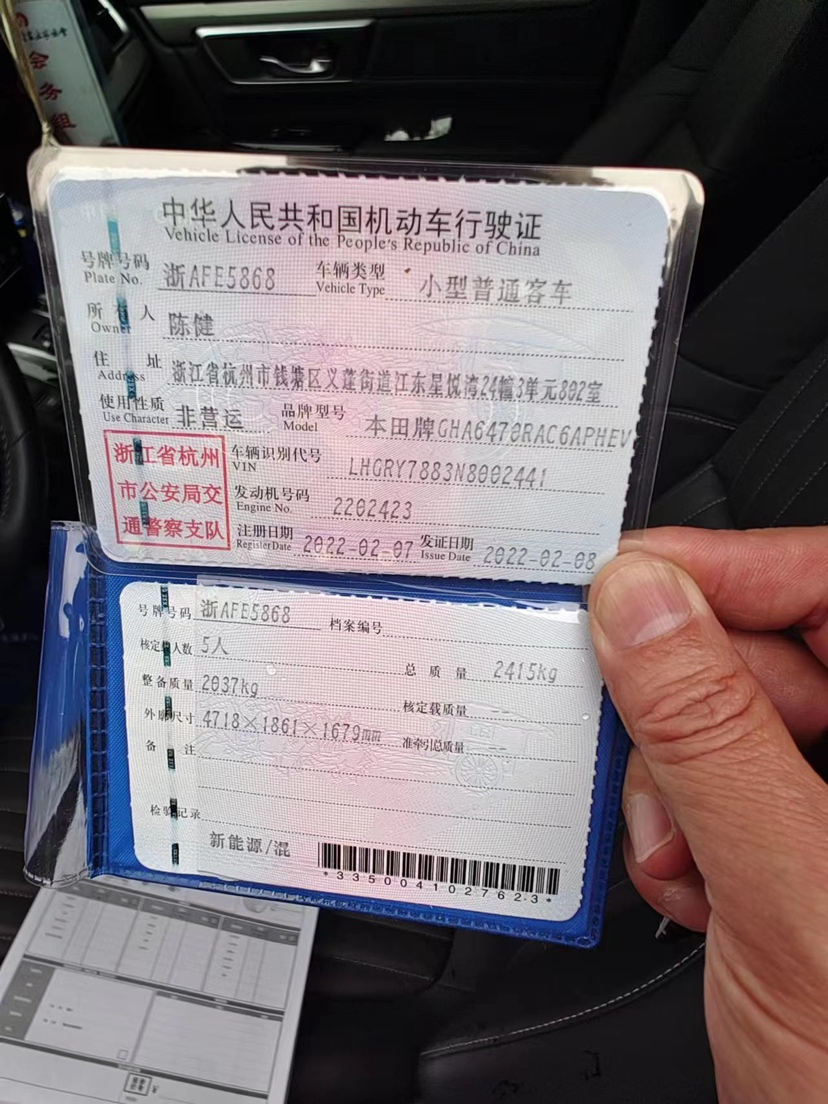 会
务
组
中华人民共和国机动车行驶证
Vehicle License of the People's Republic of China
号牌号码 浙AFE5868 车辆类型 小型普通客车
Plate No. Vehicle Type
所有人 陈健
Owner
住址 浙江省杭州市钱塘区义蓬街道江东星悦湾24幢3单元802室
Address
使用性质 非营运 品牌型号 本田牌GHA6470RAC6APHEV
Use Character Model
浙江省杭州
市公安局交
通警察支队
车辆识别代号 LHGRY7883N8002441
VIN
发动机号码 2202423
Engine No.
注册日期 2022-02-07 发证日期 2022-02-08
Register Date Issue Date
号牌号码 浙AFE5868 档案编号
核定人数 5人 总质量 2415kg
整备质量 2037kg 核定载质量 --
外廓尺寸 4718×1861×1679mm 准牵引总质量 --
备注
检验记录
新能源/混
*3350041027623*